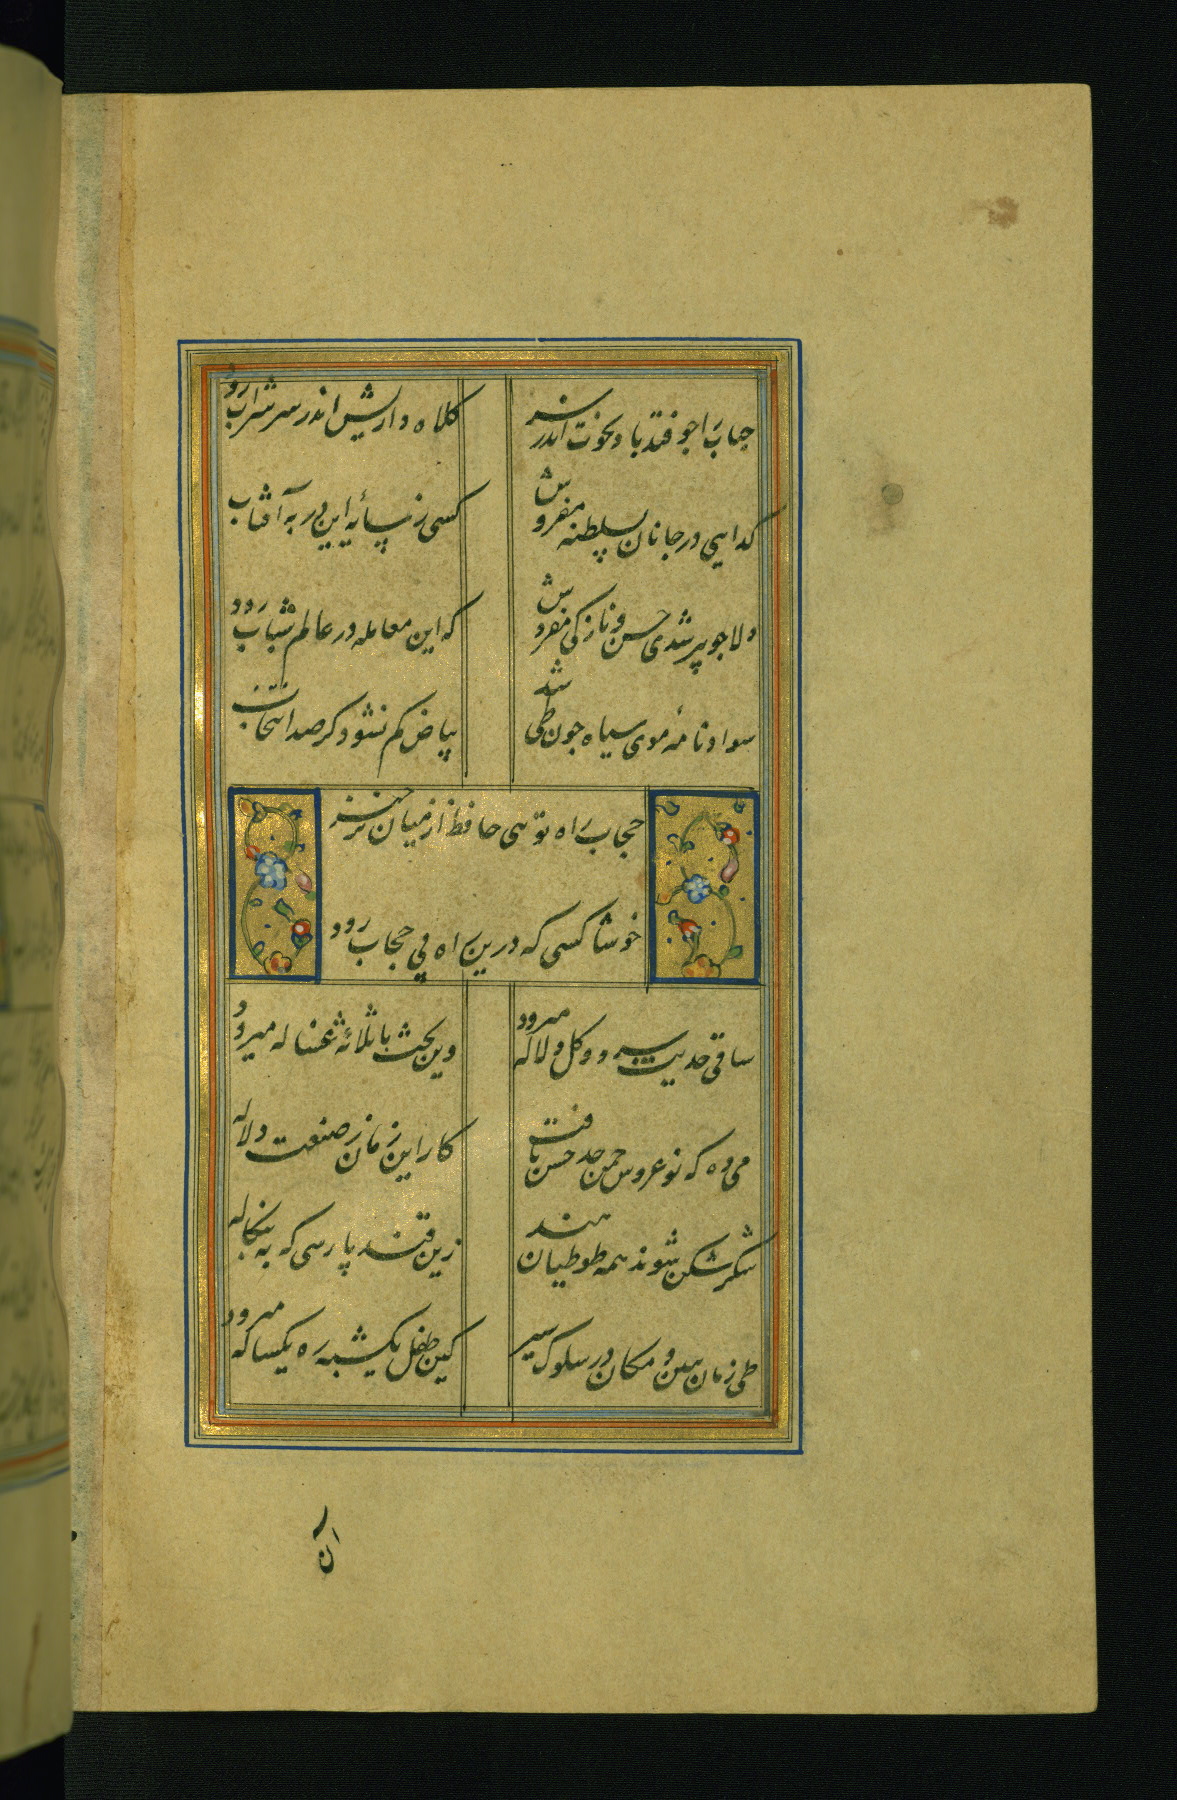 حباب را چو فتد باد نخوت اندر سر
کلاه داریش اندر سر شراب رود
کدایی در جانان بسلطنه مفروش
کسی ز سایهٔ این در به آفتاب
دلا چو پیر شدی حسن و نازکی مفروش
که این معامله در عالم شباب رود
سواد نامهٔ موی سیاه چون طی شد
بیاض کم نشود کر صد انتخاب
حجاب راه تویی حافظ از میان برخیز
خوشا کسی که درین راه بی حجاب رود
ساقی حدیث سرو و کل و لاله میرود
وین بحث با ثلاثهٔ غساله میرود
می ده که نوعروس چمن حد حسن یافت
کار این زمان ز صنعت دلاله
شکر شکن شوند همه طوطیان هند
زین قند پارسی که به بنکاله
طی زمان ببین و مکان در سلوک سیر
کین طفل یکشبه ره یکساله میرود
آن